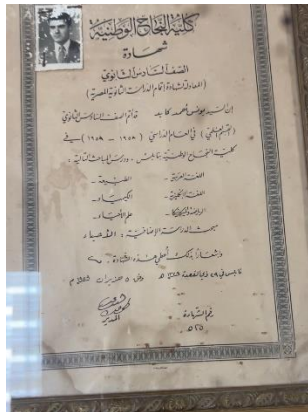 كلية النجاح الوطنية
شهادة
الصف السادس الثانوي
(المعادلة لشهادة إتمام الدراسة الثانوية المصرية)
إن السيد يونس أحمد قد أتم الصف السادس الثانوي
(القسم العلمي) في العام الدراسي (١٩٥٨ - ١٩٥٩) في
كلية النجاح الوطنية بنابلس - ودرس المباحث التالية:
اللغة العربية - الطبيعة -
اللغة الإنجليزية - الكيمياء -
الرياضة والميكانيكا - علم الأحياء -
مبحث الدراسة الإضافية: الأحياء
وإشعاراً بذلك أعطي هذه الشهادة
نابلس في ذي القعدة هـ وفي ٥ حزيران م
المدير
رقم الشهادة
٥٢٥